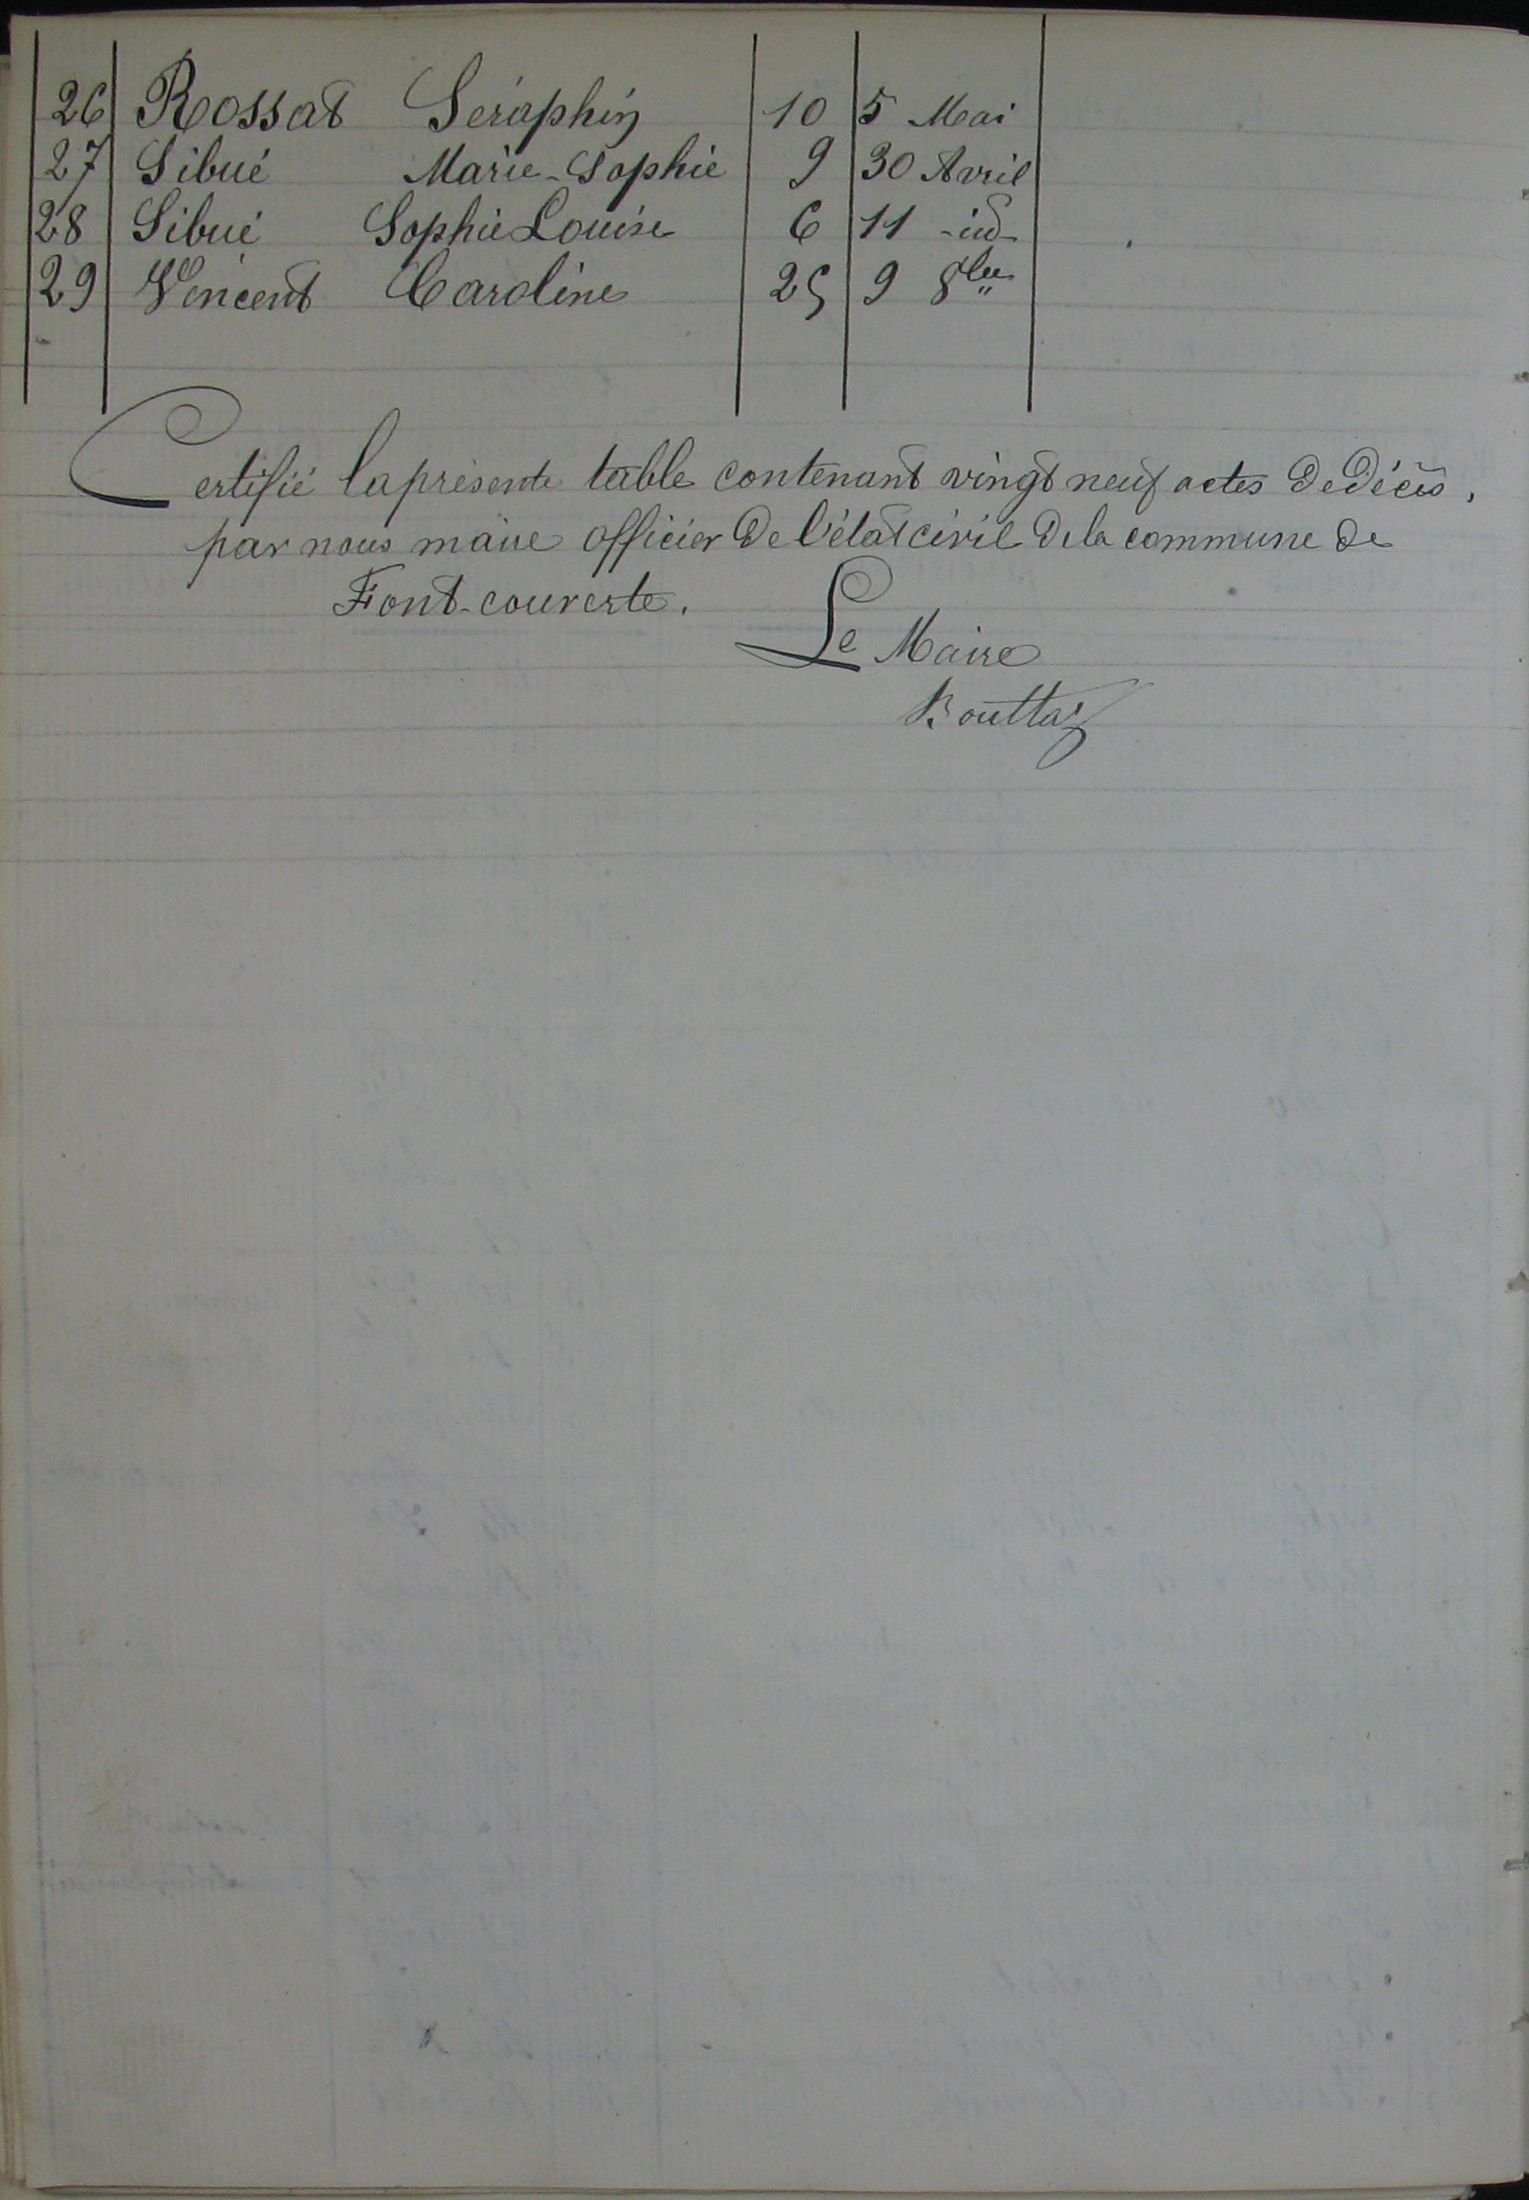 26 Rossat Séraphin 10 5 Mai
27 Sibué Marie-Sophie 9 30 Avril
28 Sibué Sophie Louise 6 11 -id-
29 Vincent Caroline 25 9 8bre
Certifié la présente table contenant vingt neuf actes de décès,
par nous maire officier de l'état civil de la commune de
Font-couverte.
Le Maire
Bouttaz